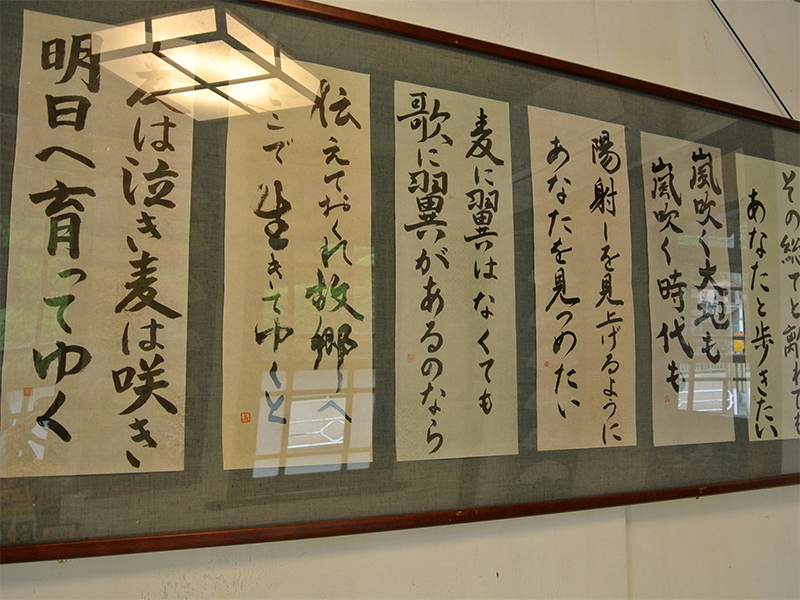 その総てと離れても
あなたと歩きたい
嵐吹く大地も
嵐吹く時代も
陽射しを見上げるように
あなたを見つめたい
麦に翼はなくても
歌に翼があるのなら
伝えておくれ故郷へ
ここで生きてゆくと
麦は泣き麦は咲き
明日へ育ってゆく